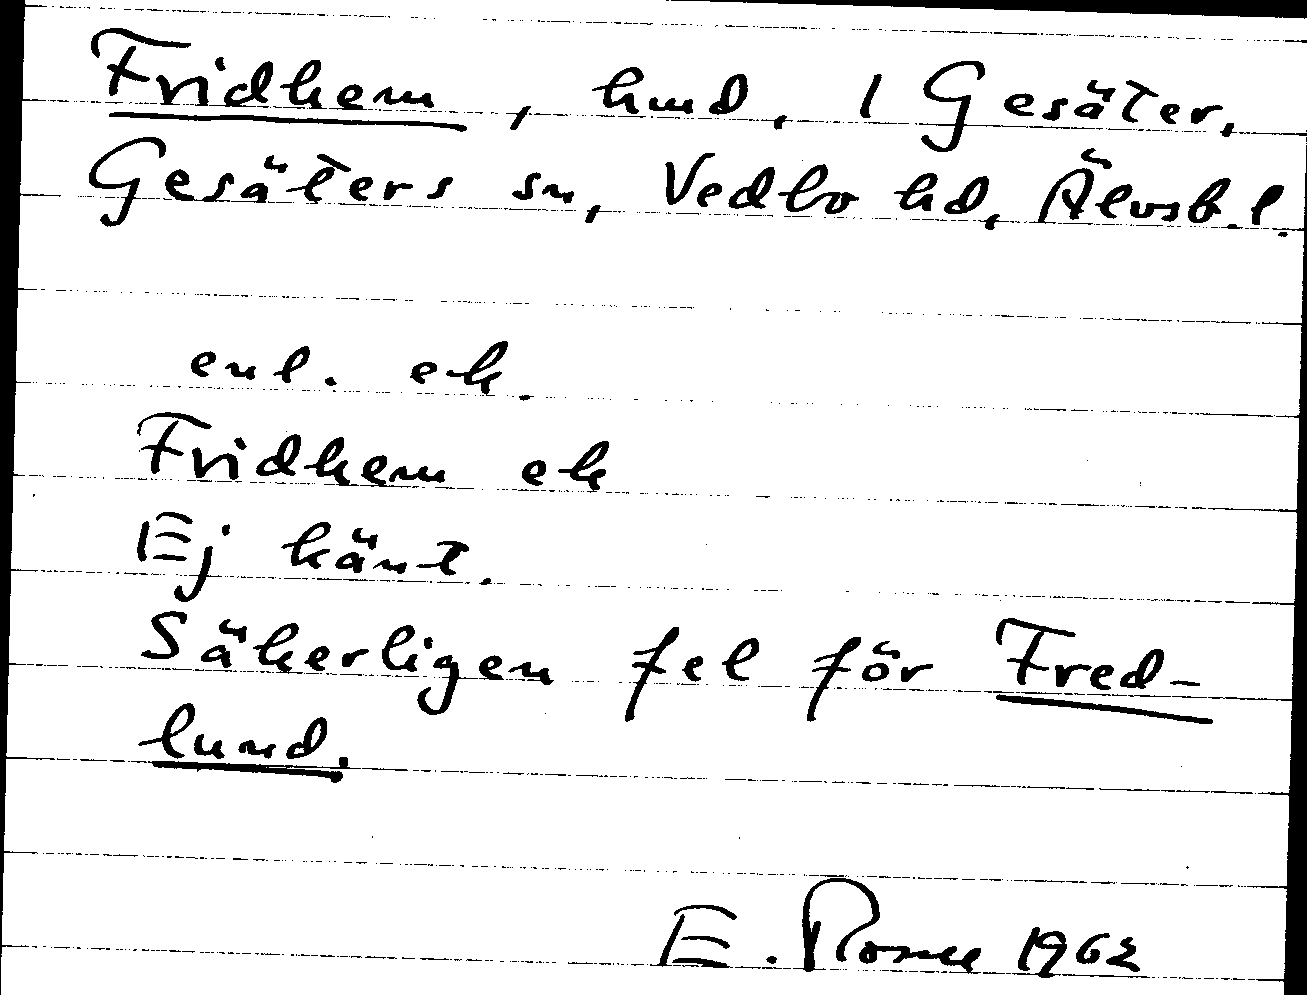 Fridhem, hmd. 1 Gesäter,
Gesäters sn, Vedbo hd, Älvsb. l.
enl. ek.
Fridhem ek
Ej känt.
Säkerligen fel för Fred-
lund.
E. 1962